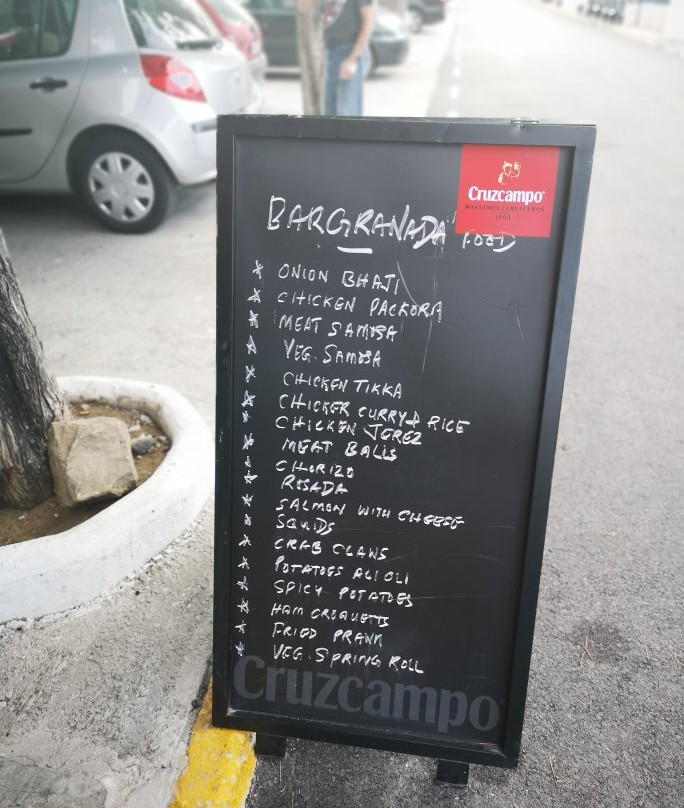 Cruzcampo
MAESTROS CERVECEROS
1904
BARGRANADA FOOD
ONION BHAJI
CHICKEN PACKORA
MEAT SAMOSA
VEG. SAMOSA
CHICKEN TIKKA
CHICKER CURRY & RICE
CHICKEN JEREZ
MEAT BALLS
CHORIZO
ROSADA
SALMON WITH CHEESE
SQUIDS
CRAB CLAWS
POTATOES ALIOLI
SPICY POTATOES
HAM CROQUETTS
FRIED PRAWN
VEG. SPRING ROLL
Cruzcampo